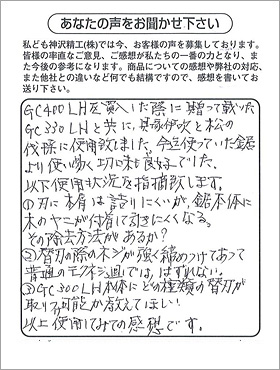 あなたの声をお聞かせ下さい
私ども神沢精工(株)では今、お客様の声を募集しております。
皆様の率直なご意見、ご感想が私たちの一番の力となり、ま
た今後の参考になります。商品についての感想や弊社の対応、
また他社との違いなど何でも結構ですので、感想を書いてお
送り下さい。
GC400LHを購入した際に贈って戴いた
GC330LHと共に、伊吹と松の
伐採に使用致ました。今迄使っていた鋸
より使い易く切口も良好でした。
以下使用状況を指摘致します。
①刃に木屑は詰りにくいが、鋸本体に
木のヤニが付着して引きにくくなる。
その除去方法があるか?
②替刃の際の木ジが強く締めつけてあって
普通のでは、はずれない。
③GC300LH本体にどの種類の替刃が
取り可能か教えてほしい
以上使用してみての感想です。